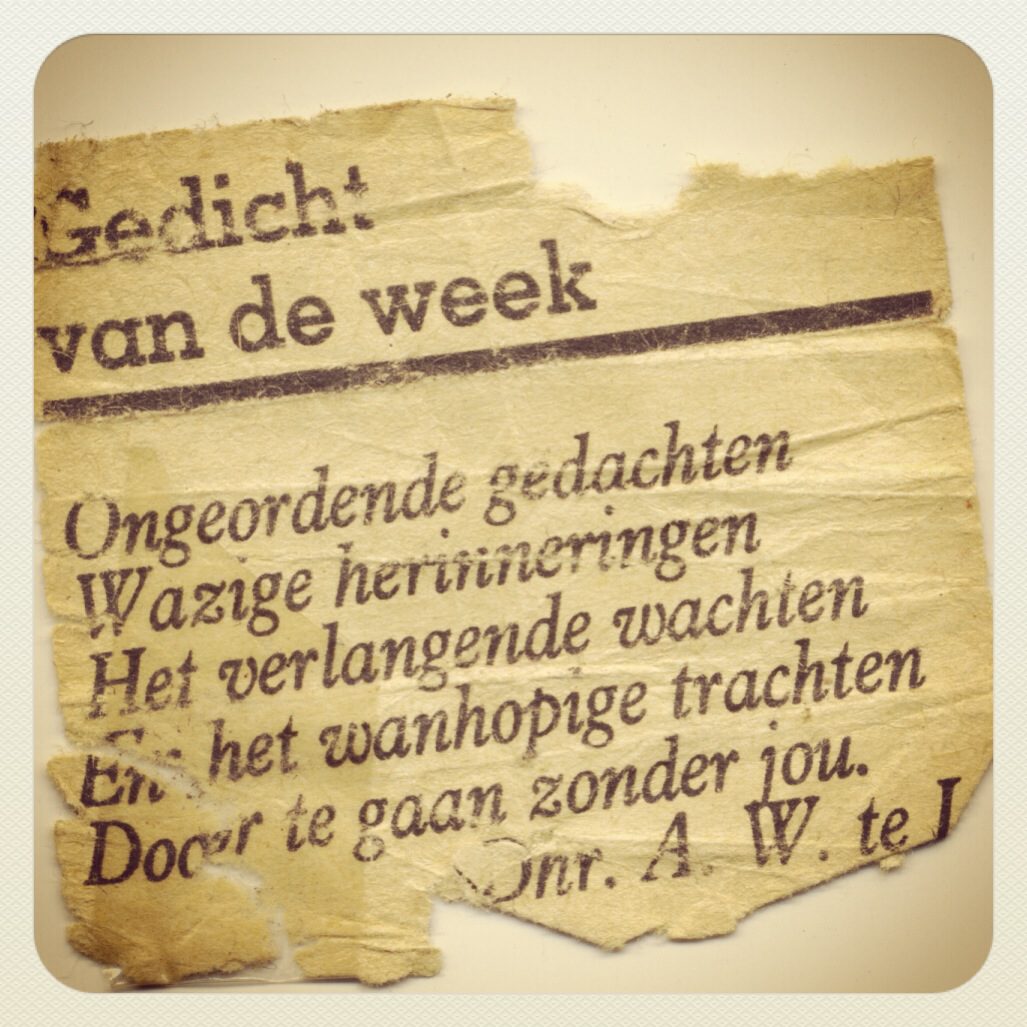 Gedicht
van de week
Ongeordende gedachten
Wazige herinneringen
Het verlangende wachten
En het wanhopige trachten
Door te gaan zonder jou.
Jnr. A. W. te